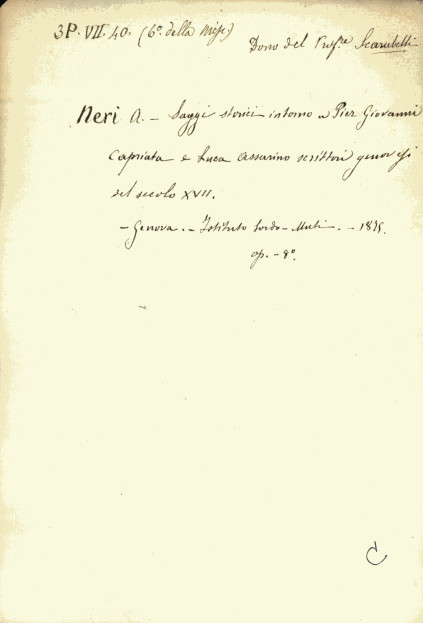 3P. VII. 40. (6º. della Misc.)
Dono del Prof.re Scarabelli
Neri A. — Saggi storici intorno a Pier Giovanni
Capriata e Luca Assarino scrittori genovesi
del secolo XVII.
— Genova. — Istituto Sordo-Muti — . — 1875.
op. — 8º
C